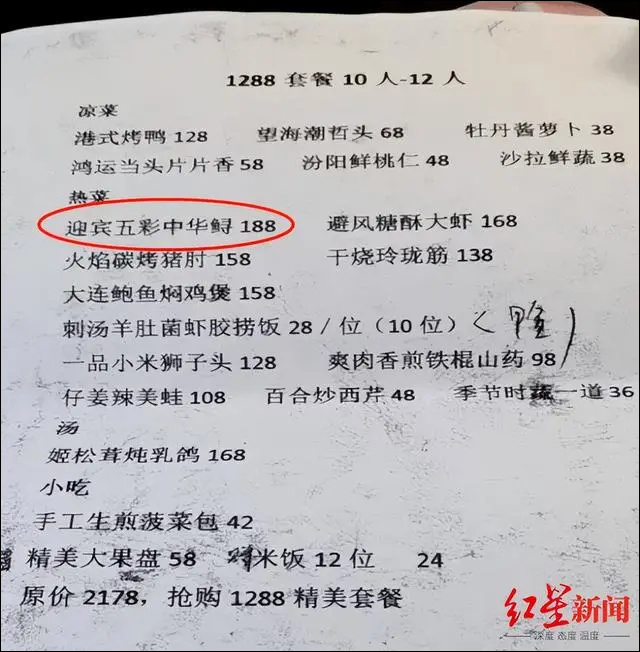 1288 套餐 10 人-12 人
凉菜
港式烤鸭 128 望海潮哲头 68 牡丹酱萝卜 38
鸿运当头片片香 58 汾阳鲜桃仁 48 沙拉鲜蔬 38
热菜
迎宾五彩中华鲟 188 避风糖酥大虾 168
火焰碳烤猪肘 158 干烧玲珑筋 138
大连鲍鱼焖鸡煲 158
刺汤羊肚菌虾胶捞饭 28／位（10 位）
一品小米狮子头 128 爽肉香煎铁棍山药 98
仔姜辣美蛙 108 百合炒西芹 48 季节时蔬一道 36
汤
姬松茸炖乳鸽 168
小吃
手工生煎菠菜包 42
精美大果盘 58 米饭 12 位 24
原价 2178，抢购 1288 精美套餐
红星新闻
深度 态度 温度